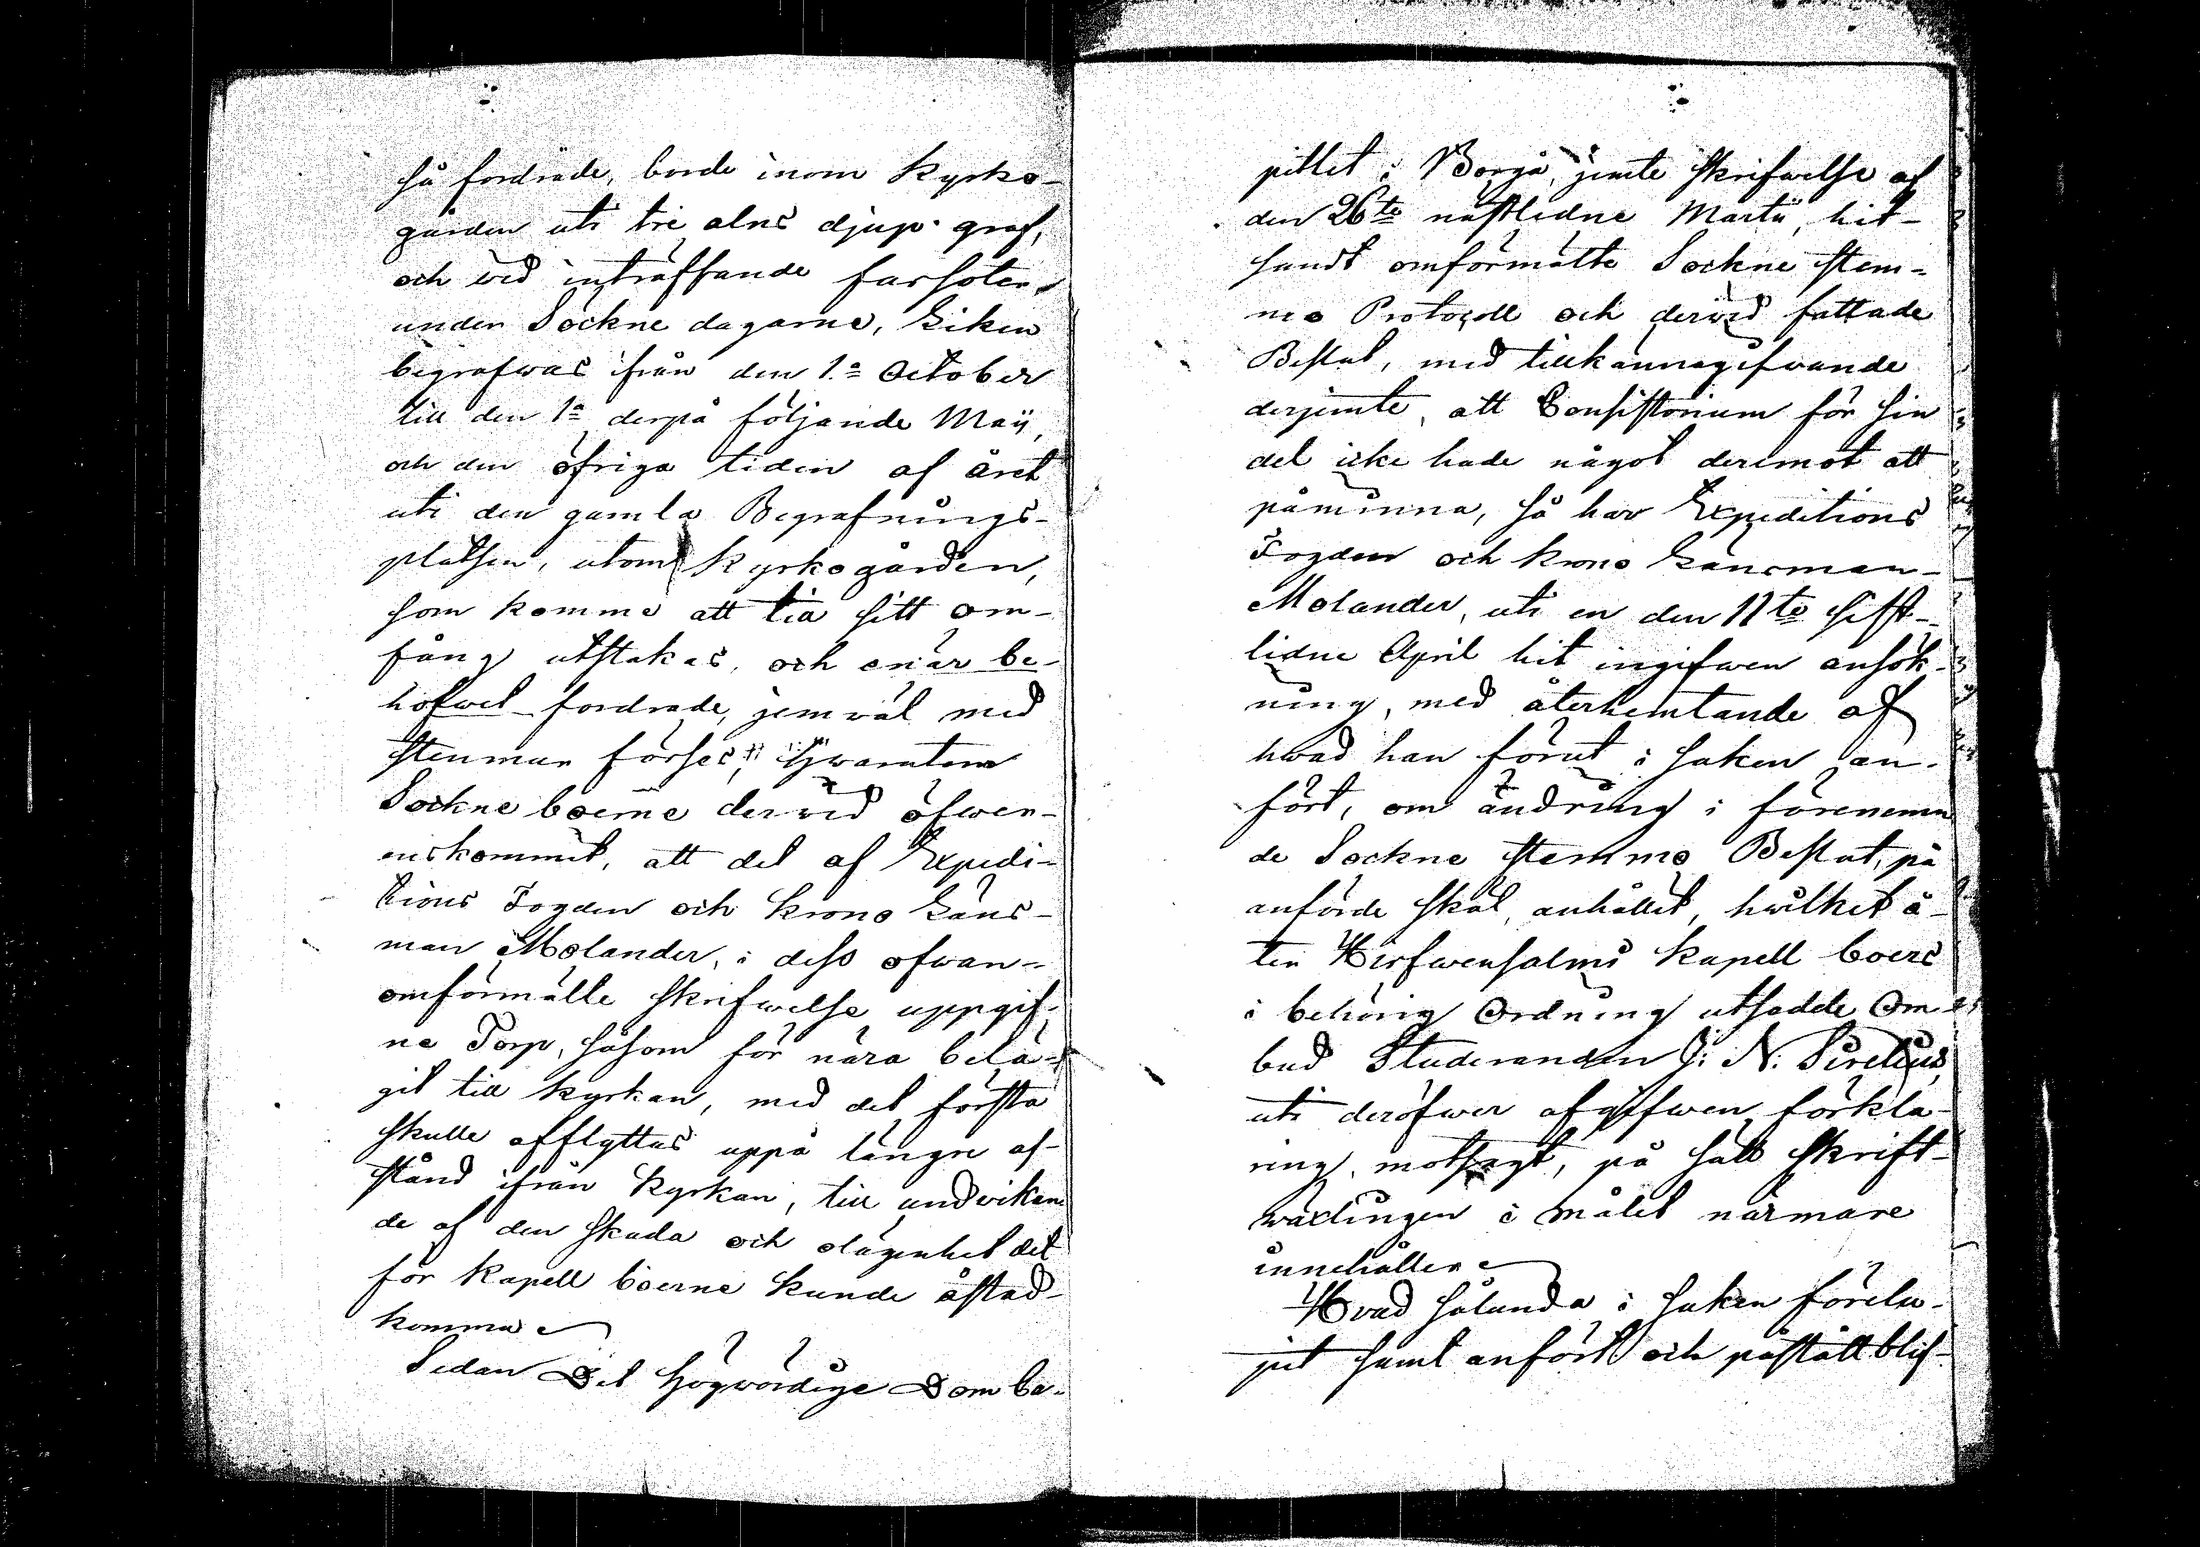 så fordrade, borde inom kyrko-
gården uti tre alns djup graf,
och wid inträffande farsoter,
under Sockne dagarne, Liken
begrafwas ifrån den 1:a October
till den 1a derpå följande Maii,
och den öfriga tiden af året
uti den gamla Begrafnings-
platsen, utom kyrkogården,
som komme att till sitt om-
fång utstakas, och enär be-
hofwet fordrade, jemväl med
stenmur förses; Hwarutom
Sockneboerne derwid öfwer-
enskommit, att det af Expedi-
tions Fogden och krono Läns-
man Molander, i dess ofwan-
omförmälte skrifwelse uppgif-
ne Torp, såsom för nära belä-
git till kyrkan, med det första
skulle afflyttas uppå längre af-
stånd ifrån kyrkan, till undwikan
de af den skada och olägenhet det
för kapell boerne kunde åstad-
komma
Sedan Det Högwördige Domka-
pittlet i Borgå, jemte skrifwelse af
den 26te nästledne Martii, hit-
sändt omförmälte Sockne stem-
mo Protocoll och derwid fattade
Beslut, med tillkännagifwande
derjemte, att Consistorium för sin
del icke hade något deremot att
påminna, så har Expeditions
Fogden och krono Länsman
Molander, uti en den 11te sist-
lidne April hit ingifwen ansök-
ning, med återhemtande af
hwad han förut i saken an-
fört, om ändring i förenemn
de Sockne stemmo Beslut, på
anförde skäl, anhållit, hwilket å-
ter Hirfwensalmi kapell boers
i behörig Ordning utsedde Om-
bud Studeranden J: N: Sirelius,
uti deröfwer afgifwen förkla-
ring, motsagt, på sätt skrift-
wäxlingen i målet närmare
innehåller
Hvad sålunda i saken förelu-
pit samt anfördt och påstått blif-